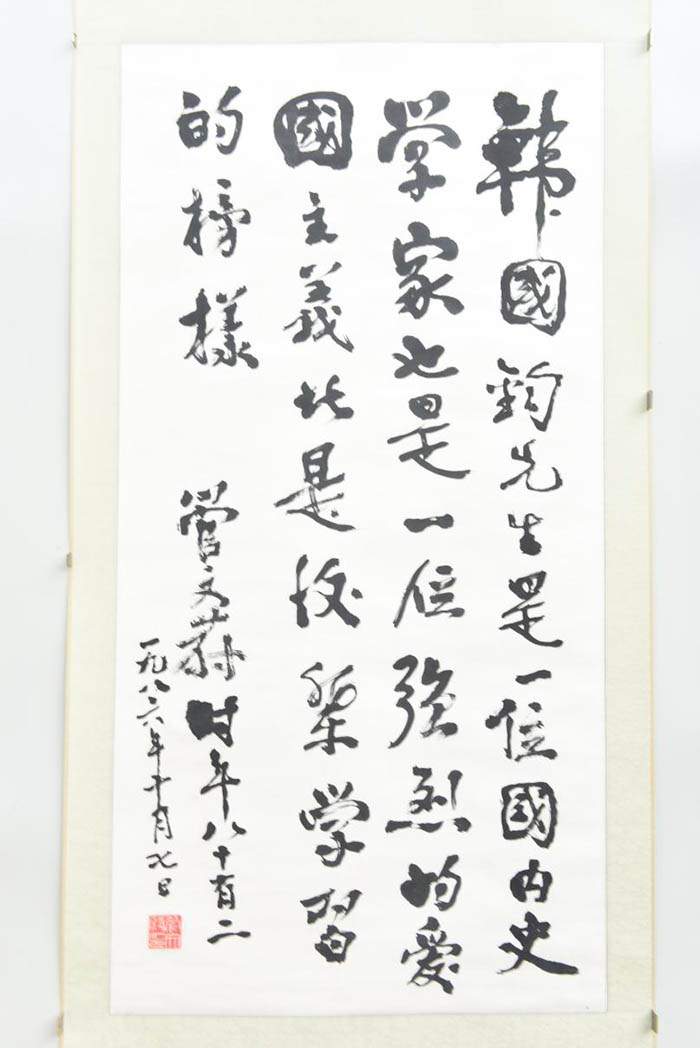 韓國鈞先生是一位國内史
学家也是一位强烈的愛
國主義此是後輩学習
的榜樣
管文蔚时年八十有二
一九八六年十月七日